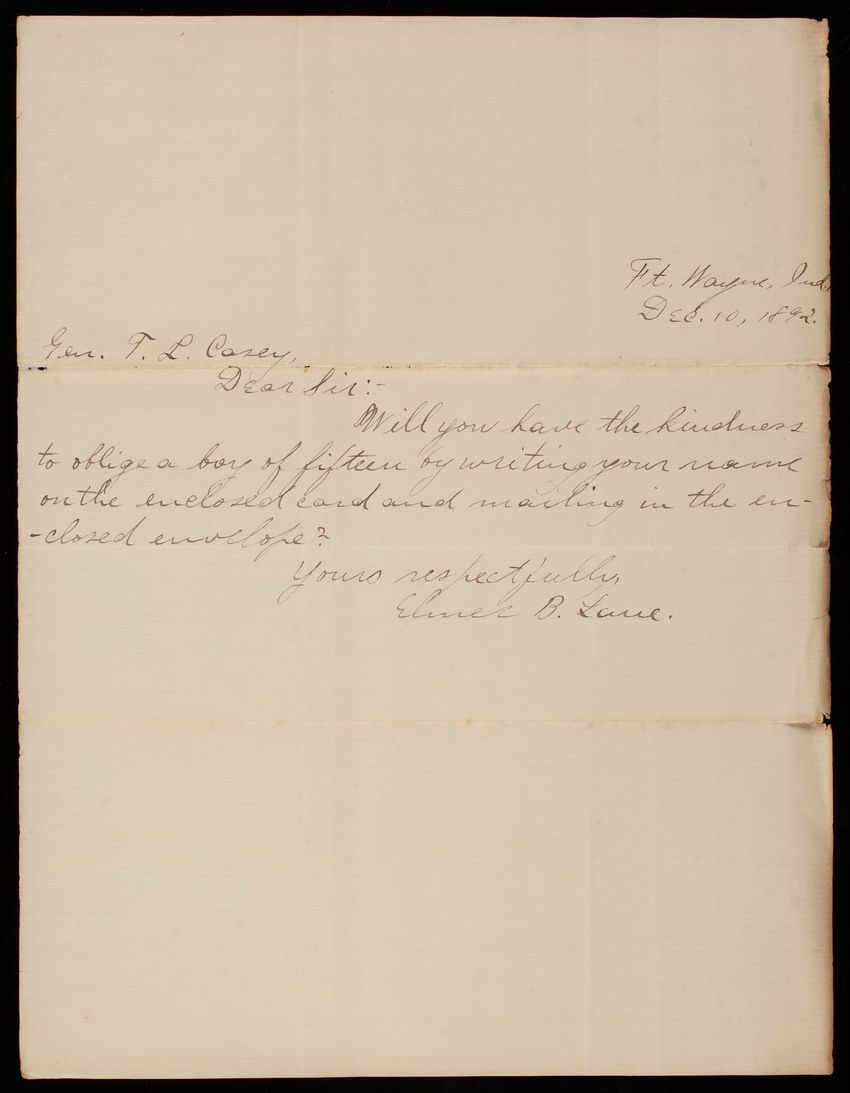 Ft. Wayne, Ind.,
Dec. 10, 1892.
Gen. T. L. Casey,
Dear Sir:-
Will you have the kindness
to oblige a boy of fifteen by writing your name
on the enclosed card and mailing in the en-
-closed envelope?
Yours respectfully,
Elmer B. Lane.